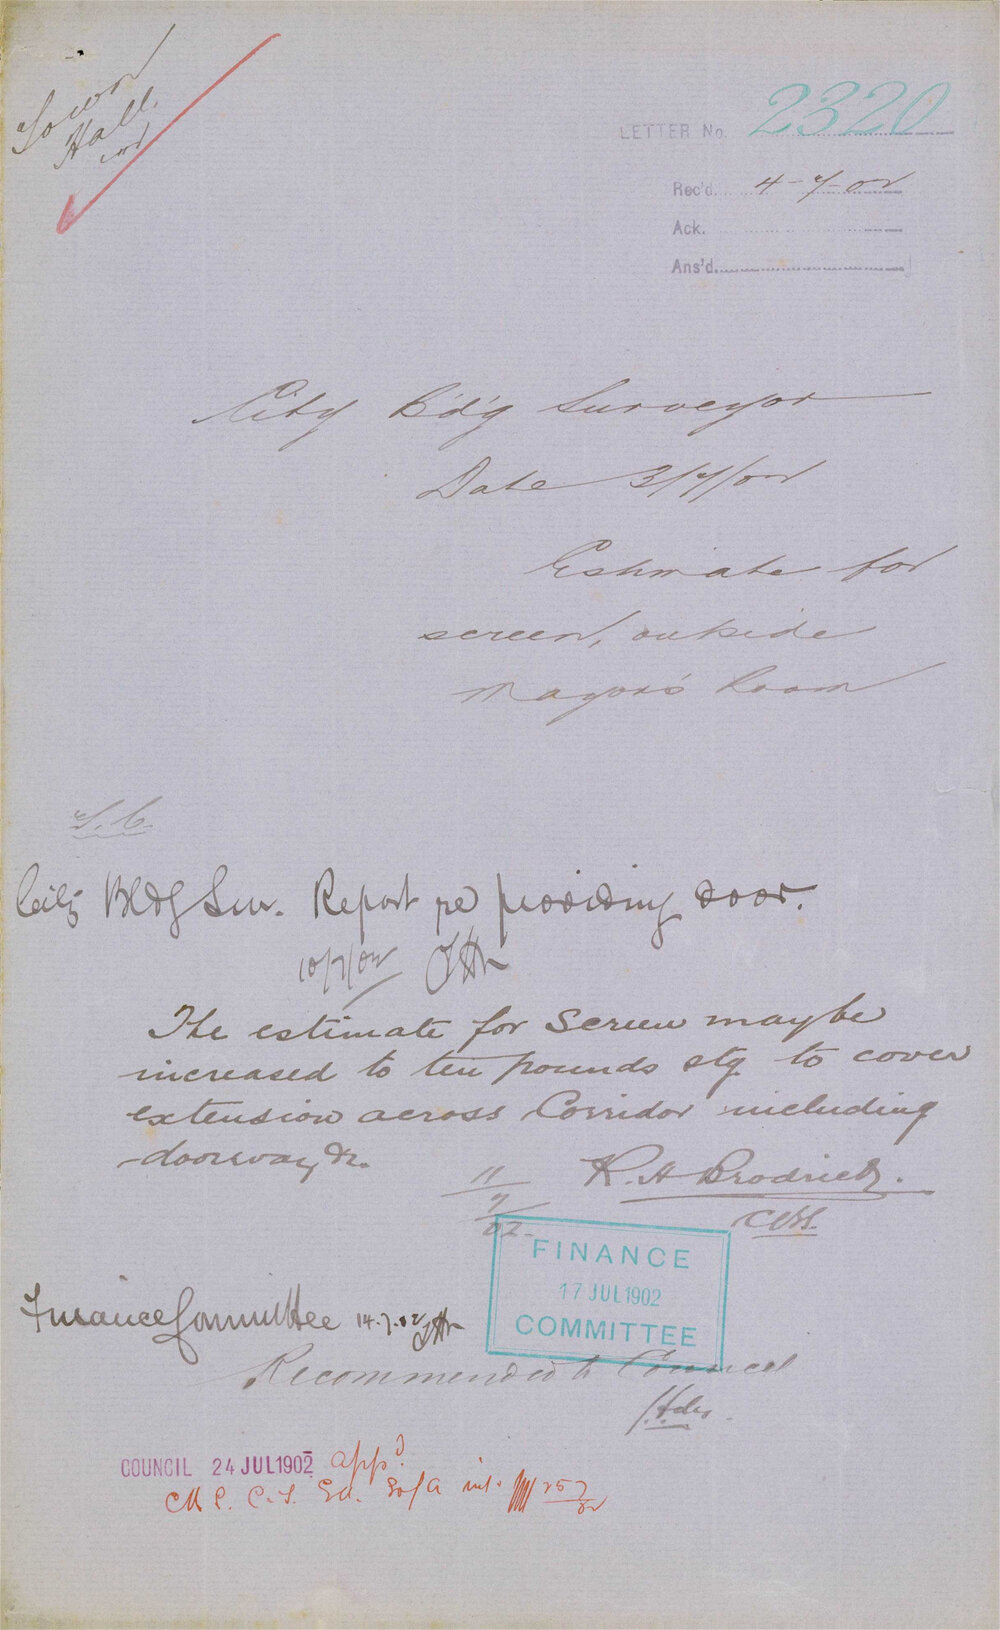 Town
Hall
LETTER No. 2320
Rec'd. 4-7-02
Ack.
Ans'd.
City B'd'g Surveyor
Date 3/7/02
Estimate for
screen, outside
Mayor's Room
T.C.
City Bldg Sur. Report re providing door.
10/7/02
The estimate for Screen may be
increased to ten pounds stg to cover
extension across Corridor including
doorway &c.
11/7/02 R. H. Brodrick.
CBS.
FINANCE
17 JUL 1902
COMMITTEE
Finance Committee 14.7.02
Recommended to Council
COUNCIL 24 JUL 1902 app'd.